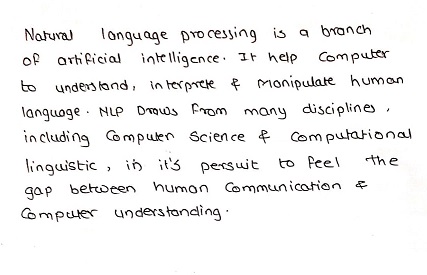 Natural language processing is a branch
of artificial intelligence. It help Computer
to understand, interprete & Manipulate human
language. NLP Draws from many disciplines,
including Computer Science & Computational
linguistic, in it's persuit to feel the
gap between human Communication &
Computer understanding.